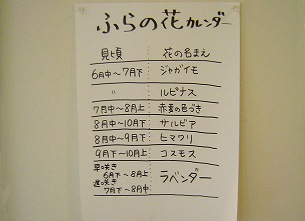 ふらの花カレンダー
見頃 花の名まえ
6月中～7月下 ジャガイモ
〃 ルピナス
7月中～8月上 赤麦の色づき
8月中～10月下 サルビア
8月中～9月下 ヒマワリ
9月下～10月上 コスモス
早咲き
6月下～8月上 ラベンダー
遅咲き
7月下～8月中